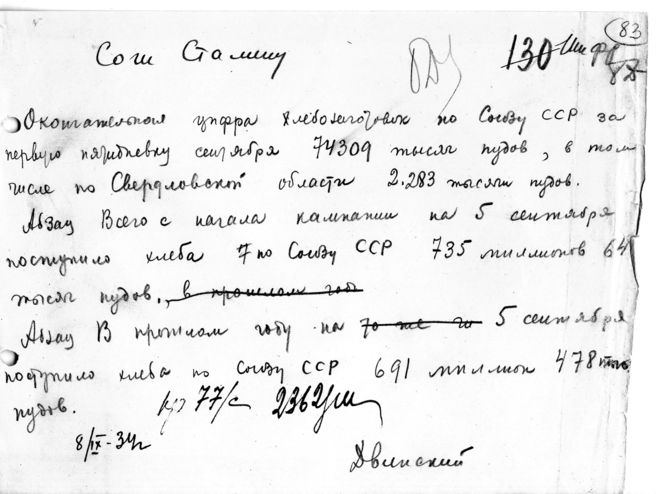 83
Сочи Сталину
130 Шифр
Окончательная цифра хлебозаготовок по Союзу ССР за
первую пятидневку сентября 74309 тысяч пудов, в том
числе по Свердловской области 2.283 тысячи пудов.
Абзац Всего с начала кампании на 5 сентября
поступило хлеба по Союзу ССР 735 миллионов 64
тысяч пудов., в прошлом году
Абзац В прошлом году на то же 5 сентября
поступило хлеба по Союзу ССР 691 миллион 478
пудов. 77/с 2362/ш
8/IX-34г
Двинский